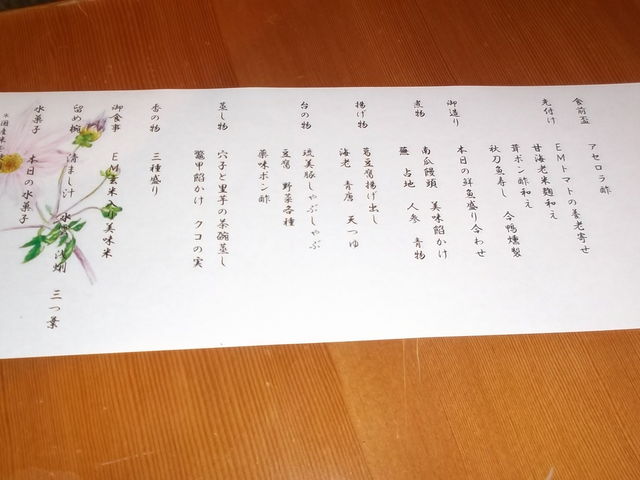 食前盃 アセロラ酢
先付け EMトマトの養老寄せ
甘海老米麹和え
茸ポン酢和え 合鴨燻製
秋刀魚寿し
御造り 本日の鮮魚盛り合わせ
煮物 南瓜饅頭 美味餡かけ
蕪 占地 人参 青物
揚げ物 葛豆腐揚げ出し
海老 青唐 天つゆ
台の物 琉美豚しゃぶしゃぶ
豆腐 野菜各種
薬味ポン酢
蒸し物 穴子と里芋の茶碗蒸し
鼈甲餡かけ クコの実
香の物 三種盛り
御食事 EM玄米入り美味米
留め椀 清まし汁 三つ葉
水菓子 本日の水菓子